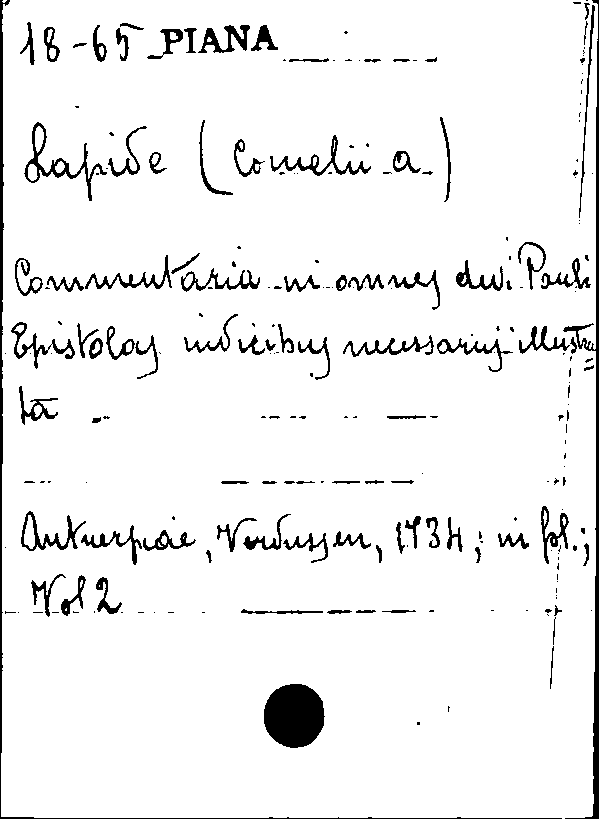 18-65 PIANA
Lapide (Cornelii a)
Commentaria in omnes divi Pauli
Epistolas indicibus necessariis illustra=
ta.
Antuerpiae, Verdussen, 1734; in fol.;
Vol 2